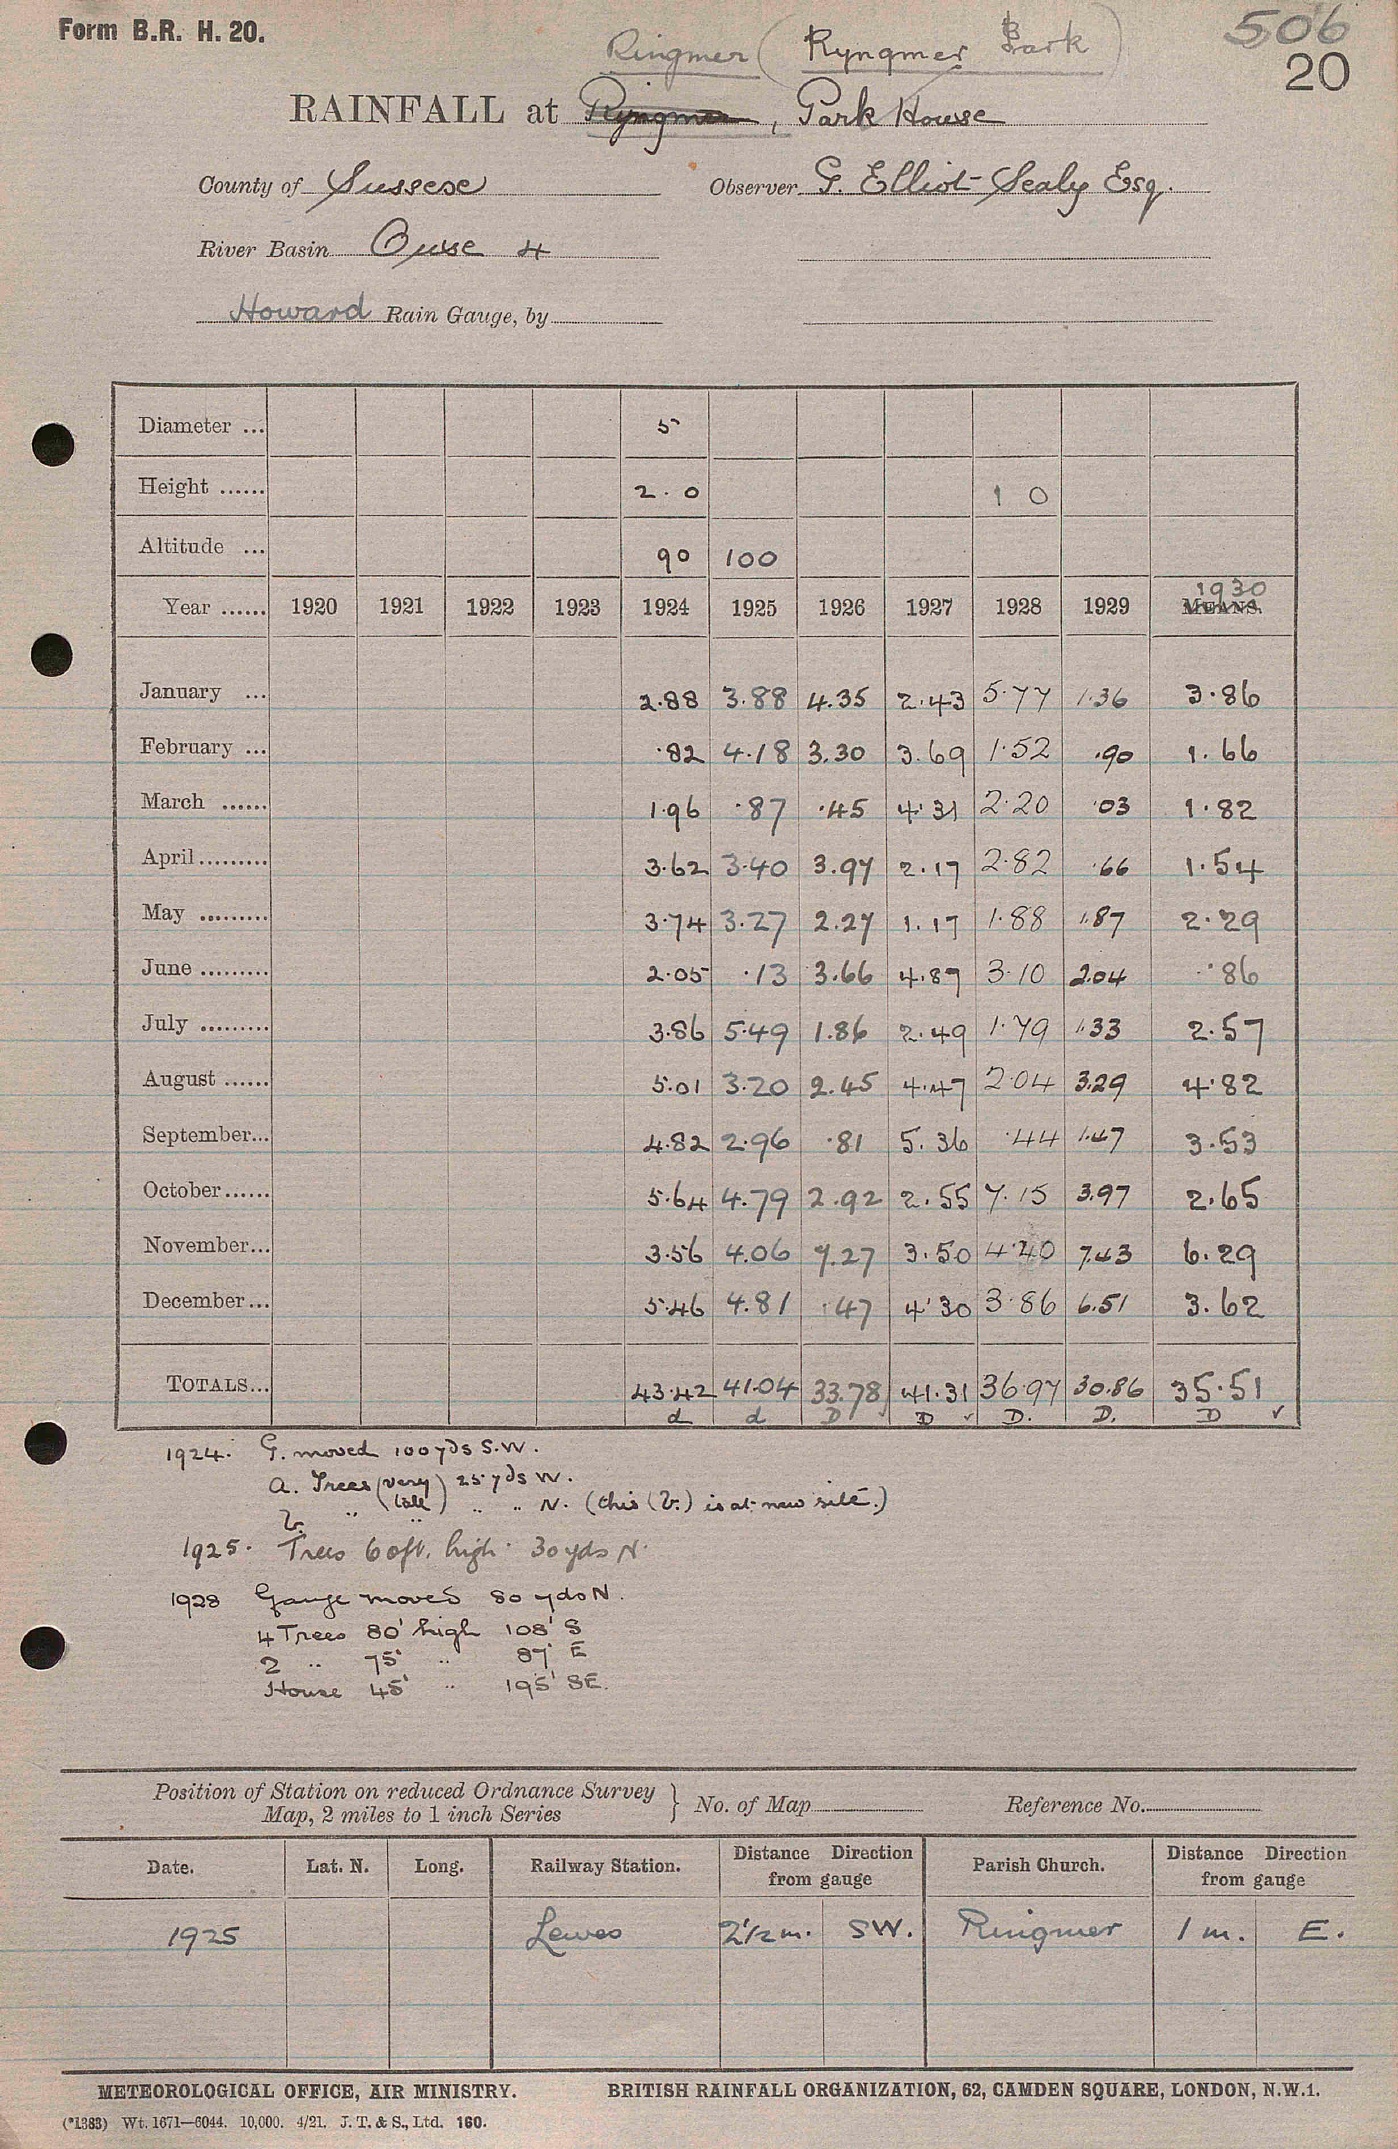 Form B.R. H. 20.
506
20
Ringmer (Ryngmer Park)
RAINFALL at Ryngmer, Park House
County of Sussex Observer G. Elliot-Sealy Esq.
River Basin Ouse 4
Howard Rain Gauge, by
Diameter ... 5
Height ...... 2.0 1 0
Altitude ... 90 100
1930
Year ...... 1920 1921 1922 1923 1924 1925 1926 1927 1928 1929 MEANS.
January ... 2.88 3.88 4.35 2.43 5.77 1.36 3.86
February ... .82 4.18 3.30 3.69 1.52 .90 1.66
March ...... 1.96 .87 .45 4.31 2.20 .03 1.82
April ......... 3.62 3.40 3.97 2.17 2.82 .66 1.54
May ......... 3.74 3.27 2.27 1.17 1.88 1.87 2.29
June ......... 2.05 .13 3.66 4.87 3.10 2.04 .86
July ......... 3.86 5.49 1.86 2.49 1.79 1.33 2.57
August ...... 5.01 3.20 2.45 4.47 2.04 3.29 4.82
September... 4.82 2.96 .81 5.36 .44 1.47 3.53
October...... 5.64 4.79 2.92 2.55 7.15 3.97 2.65
November... 3.56 4.06 7.27 3.50 4.40 7.43 6.29
December... 5.46 4.81 .47 4.30 3.86 6.51 3.62
TOTALS... 43.42 41.04 33.78 41.31 36.97 30.86 35.51
d d D D ✓ D. D. D ✓
1924. G. moved 100 yds S.W.
a. Trees (very tall) 25 yds W.
b. " " " " N. (this (b.) is at new site.)
1925. Trees 60ft. high. 30 yds N.
1928 Gauge moved 80 yds N.
4 Trees 80' high 108' S
2 " 75' " 87' E
House 45' " 195' SE.
Position of Station on reduced Ordnance Survey
Map, 2 miles to 1 inch Series } No. of Map Reference No.
Date. Lat. N. Long. Railway Station. Distance Direction from gauge Parish Church. Distance Direction from gauge
1925 Lewes 2½ m. SW. Ringmer 1 m. E.
METEOROLOGICAL OFFICE, AIR MINISTRY. BRITISH RAINFALL ORGANIZATION, 62, CAMDEN SQUARE, LONDON, N.W.1.
(*1383) Wt. 1671—6044. 10,000. 4/21. J. T. & S., Ltd. 160.